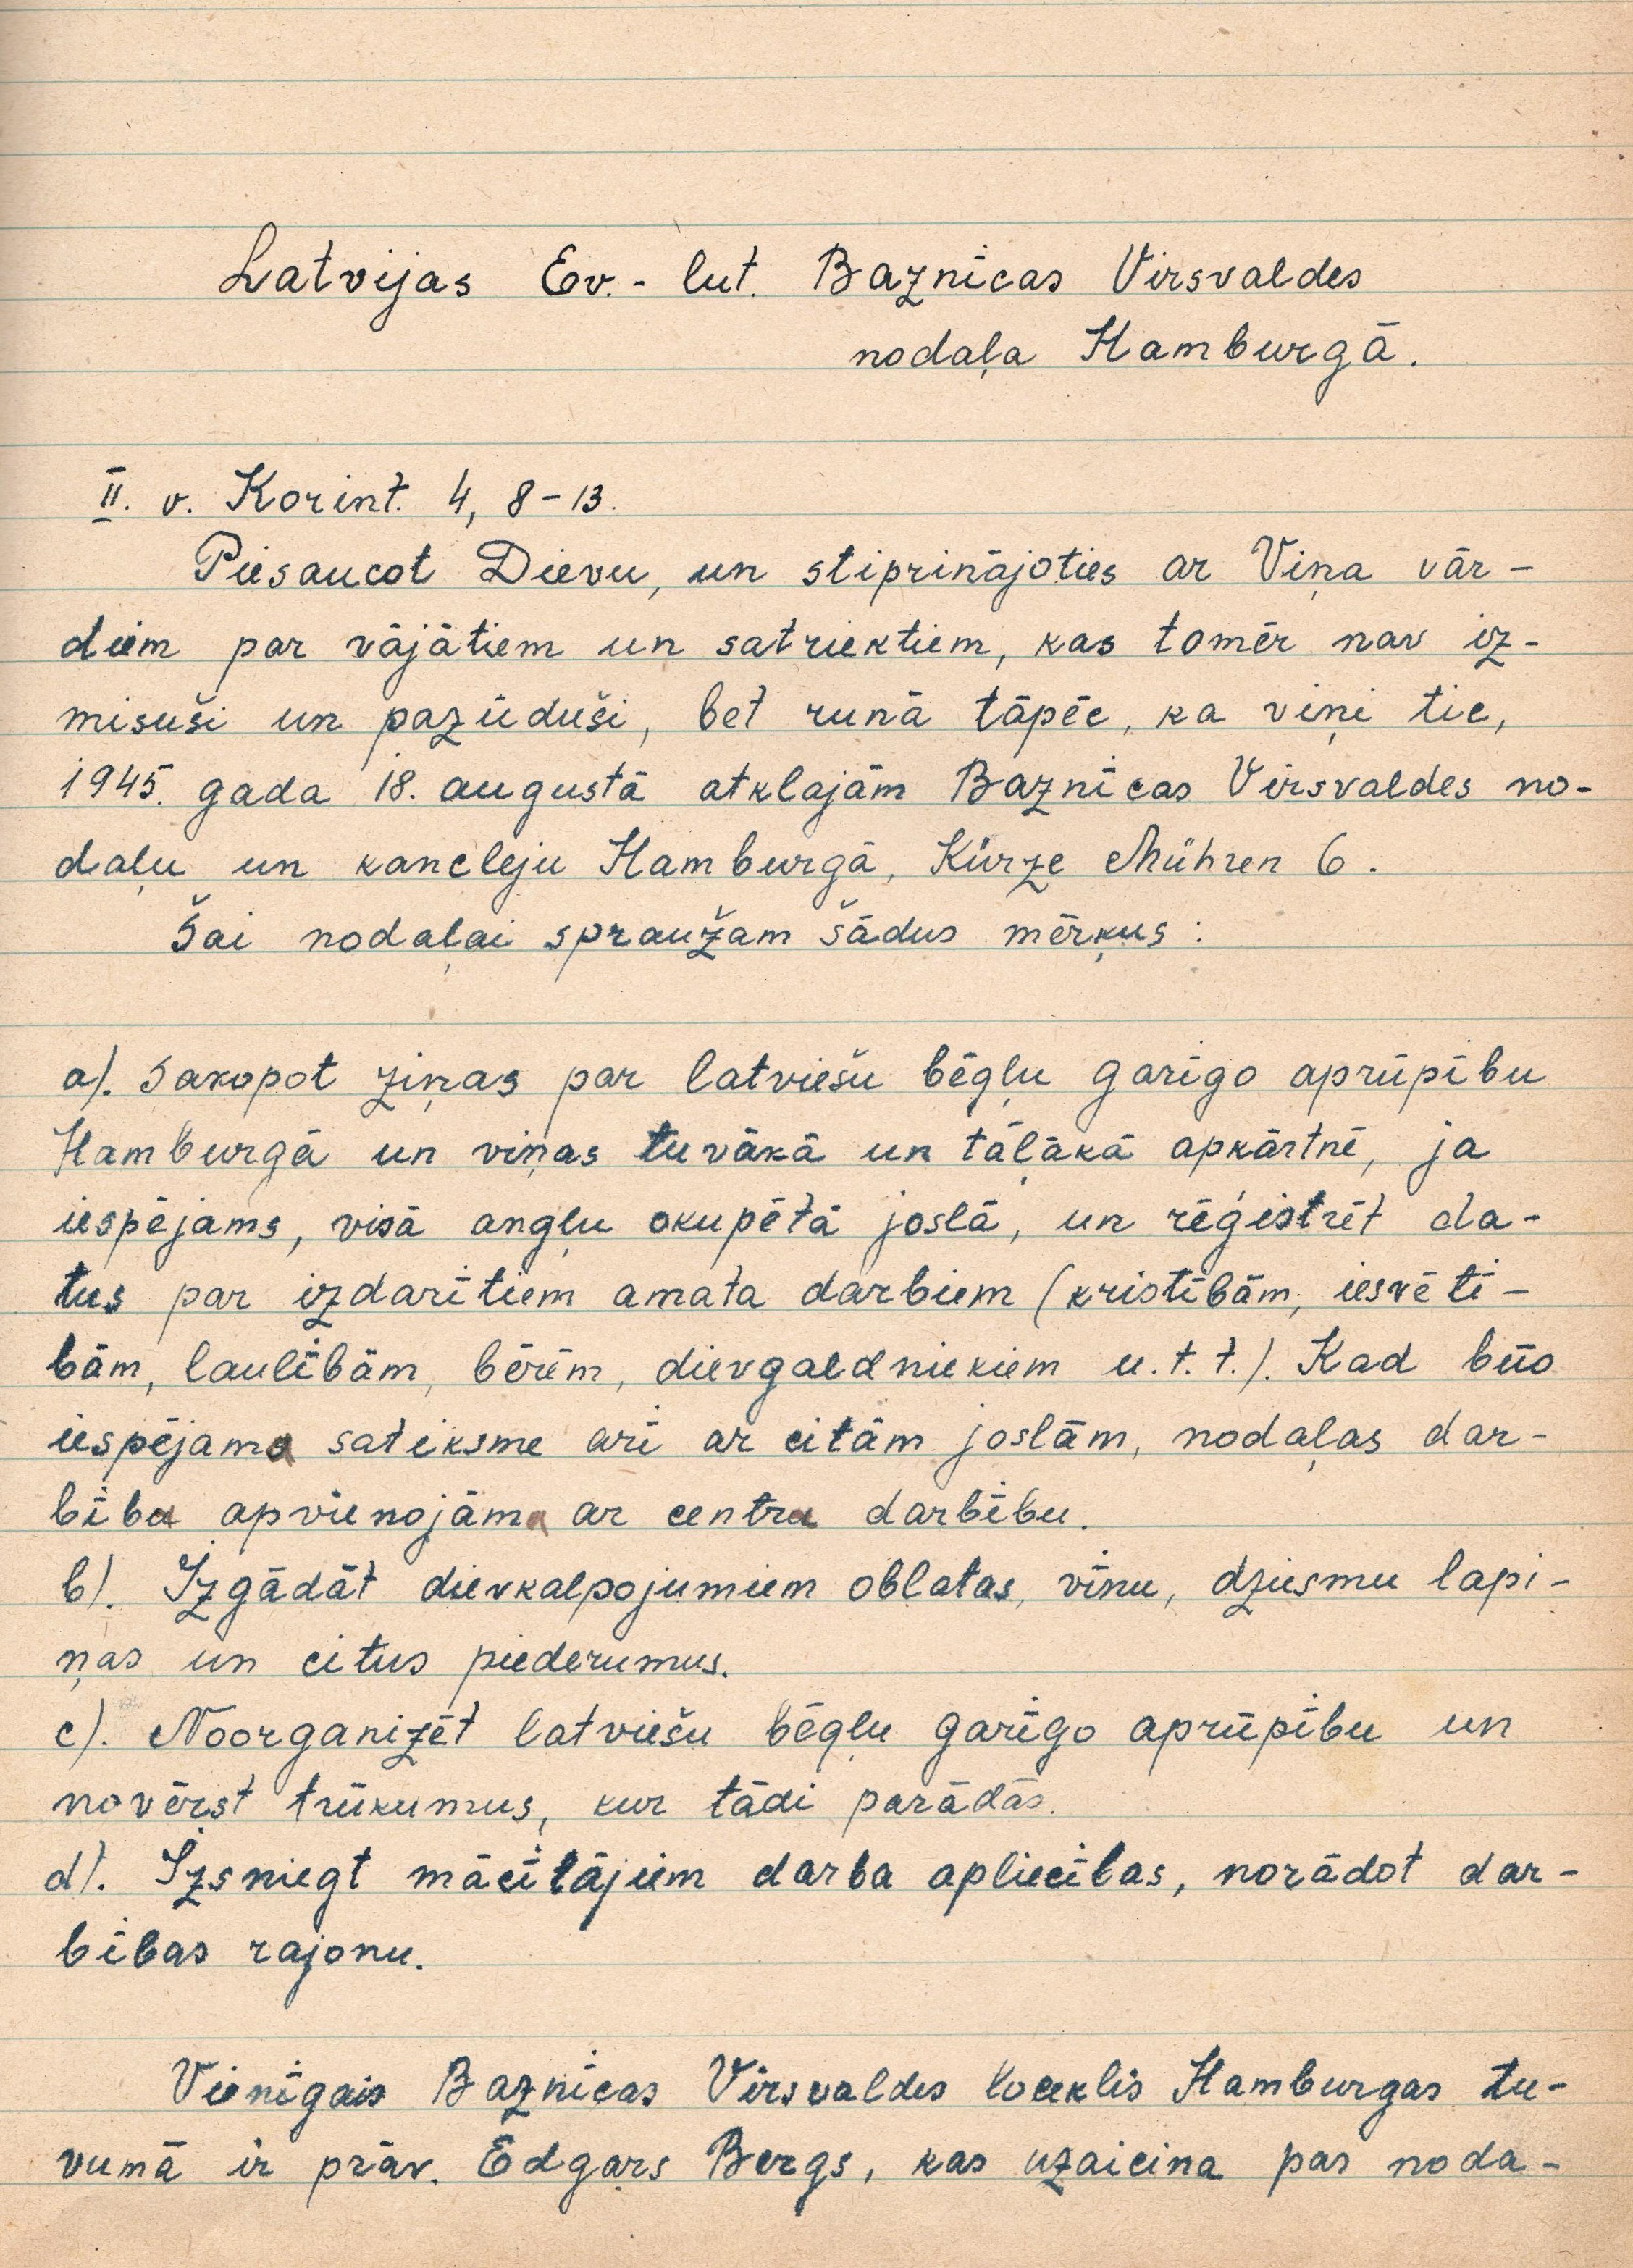 Latvijas Ev.- lut. Baznīcas Virsvaldes
nodaļa Hamburgā.
II. v. Korint. 4, 8-13.
Piesaucot Dievu, un stiprinājoties ar Viņa vār-
diem par vājātiem un satriektiem, kas tomēr nav iz-
misuši un pazūduši, bet runā tāpēc, ka viņi tic,
1945. gada 18. augustā atklajām Baznīcas Virsvaldes no-
daļu un kancleju Hamburgā, Kurze Mühren 6.
Šai nodaļai spraužam šādus mērķus:
a). Sakopot ziņas par latviešu bēgļu garīgo aprūpību
Hamburgā un viņas tuvākā un tāļākā apkārtnē, ja
iespējams, visā angļu okupētā joslā, un rēģistrēt da-
tus par izdarītiem amata darbiem (kristībām, iesvēti-
bām, laulībām, bērēm, dievgaldniekiem u.t.t.). Kad būo
iespējama satiksme arī ar citām joslām, nodaļas dar-
bība apvienojama ar centra darbību.
b). Izgādāt dievkalpojumiem oblatas, vīnu, dziesmu lapi-
ņas un citus piederumus.
c). Noorganizēt latviešu bēgļu garīgo aprūpību un
novērst trūkumus, kur tādi parādās.
d). Izsniegt mācītājiem darba apliecības, norādot dar-
bības rajonu.
Vienīgais Baznīcas Virsvaldes loceklis Hamburgas tu-
vumā ir prāv. Edgars Bergs, kas uzaicina par noda-